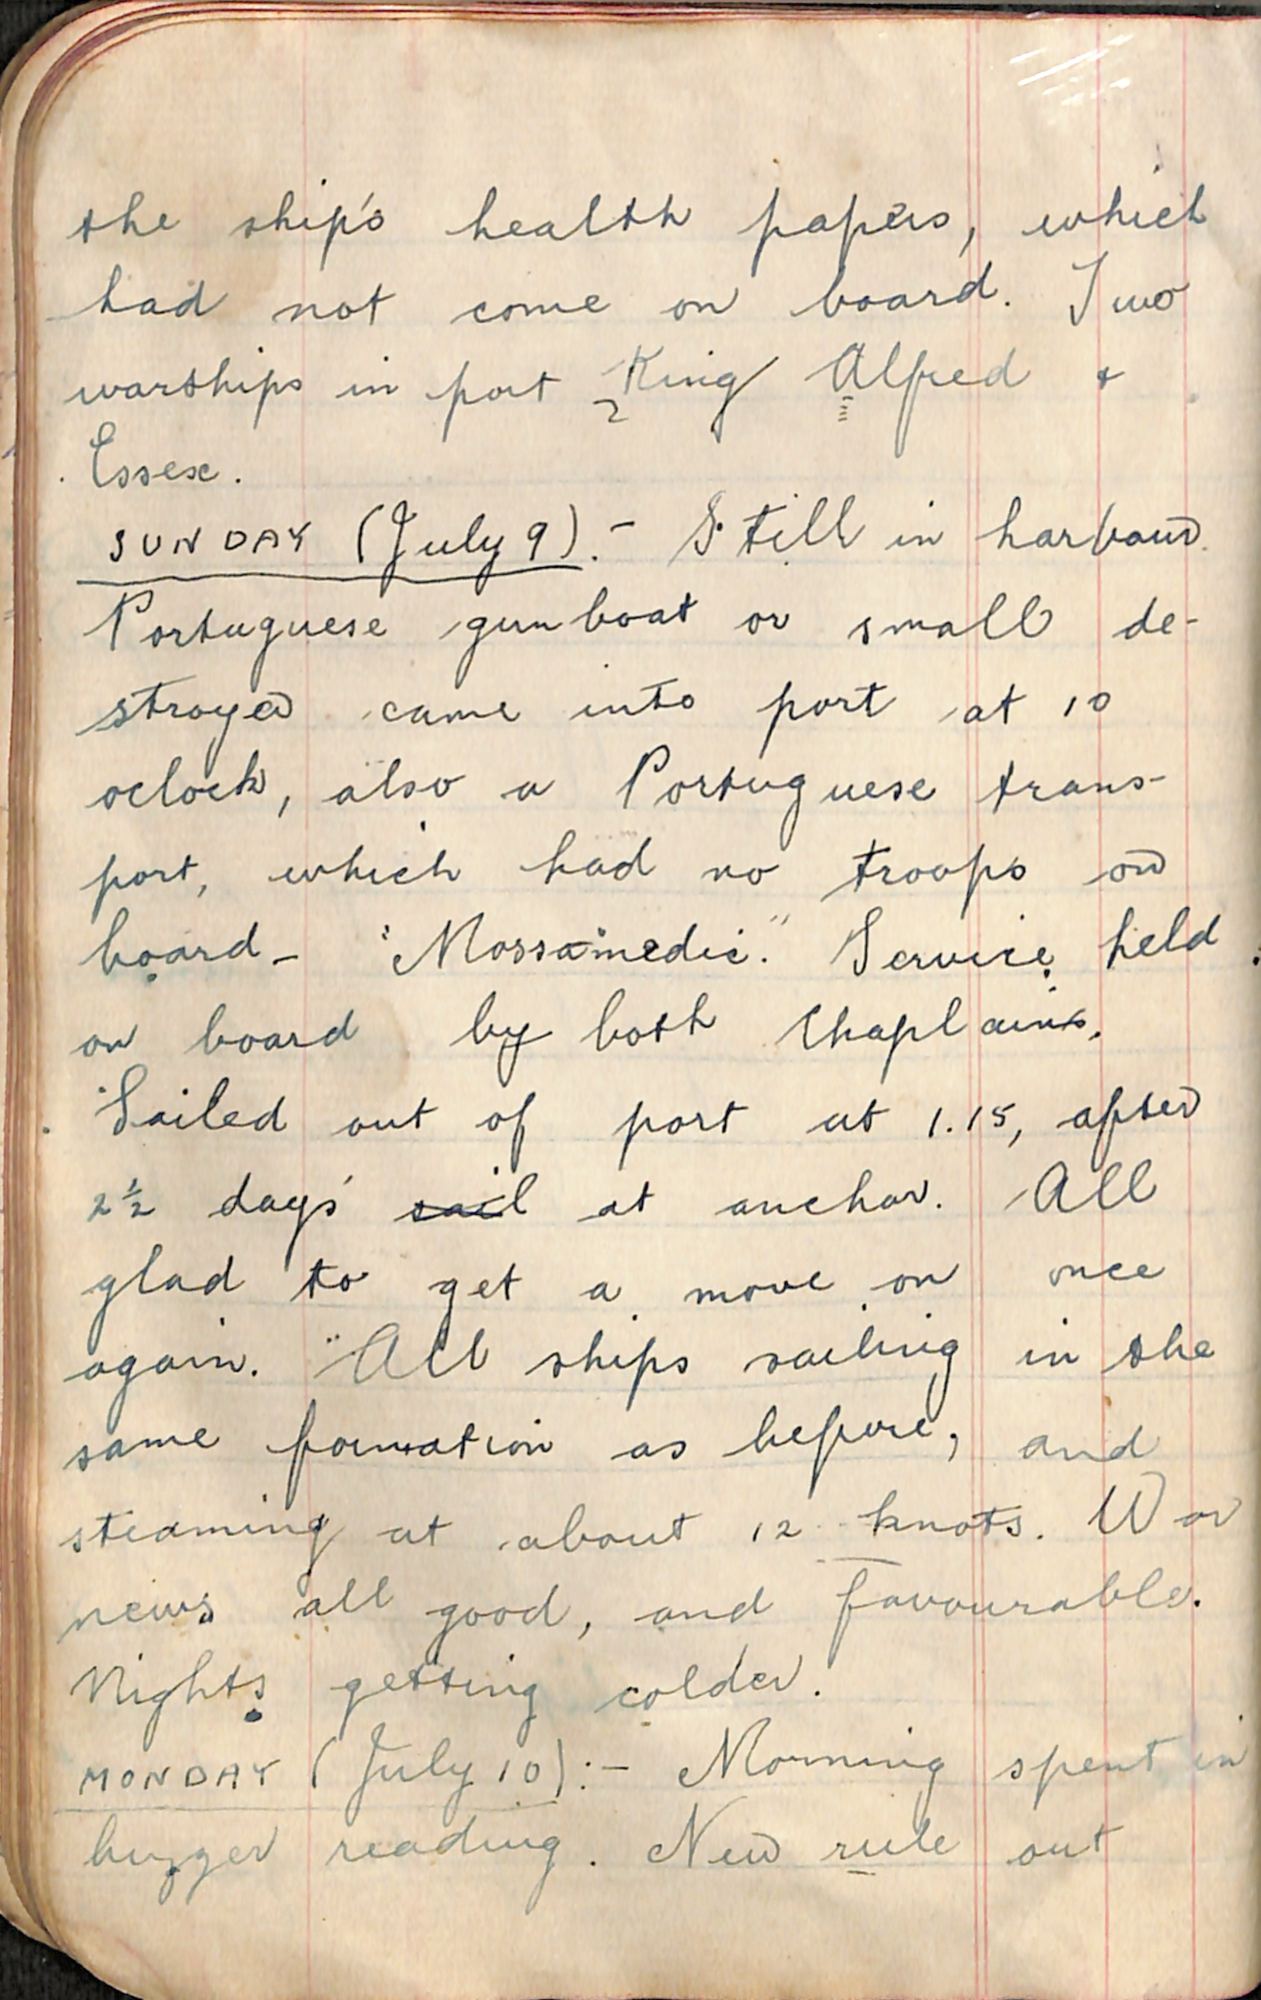 the ship's health papers, which
had not come on board. Two
warships in port King Alfred &
Essex.
SUNDAY (July 9).- Still in harbour
Portuguese gunboat or small de-
stroyer came into port at 10
oclock, also a Portuguese trans-
port, which had no troops on
board - "Mossamedic." Service held
on board by both Chaplains.
Sailed out of port at 1.15, after
2½ days' sail at anchor. All
glad to get a move on once
again. All ships sailing in the
same formation as before, and
steaming at about 12 knots. War
news all good, and favourable.
Nights getting colder.
MONDAY (July 10):- Morning spent in
buzzer reading. New rule out